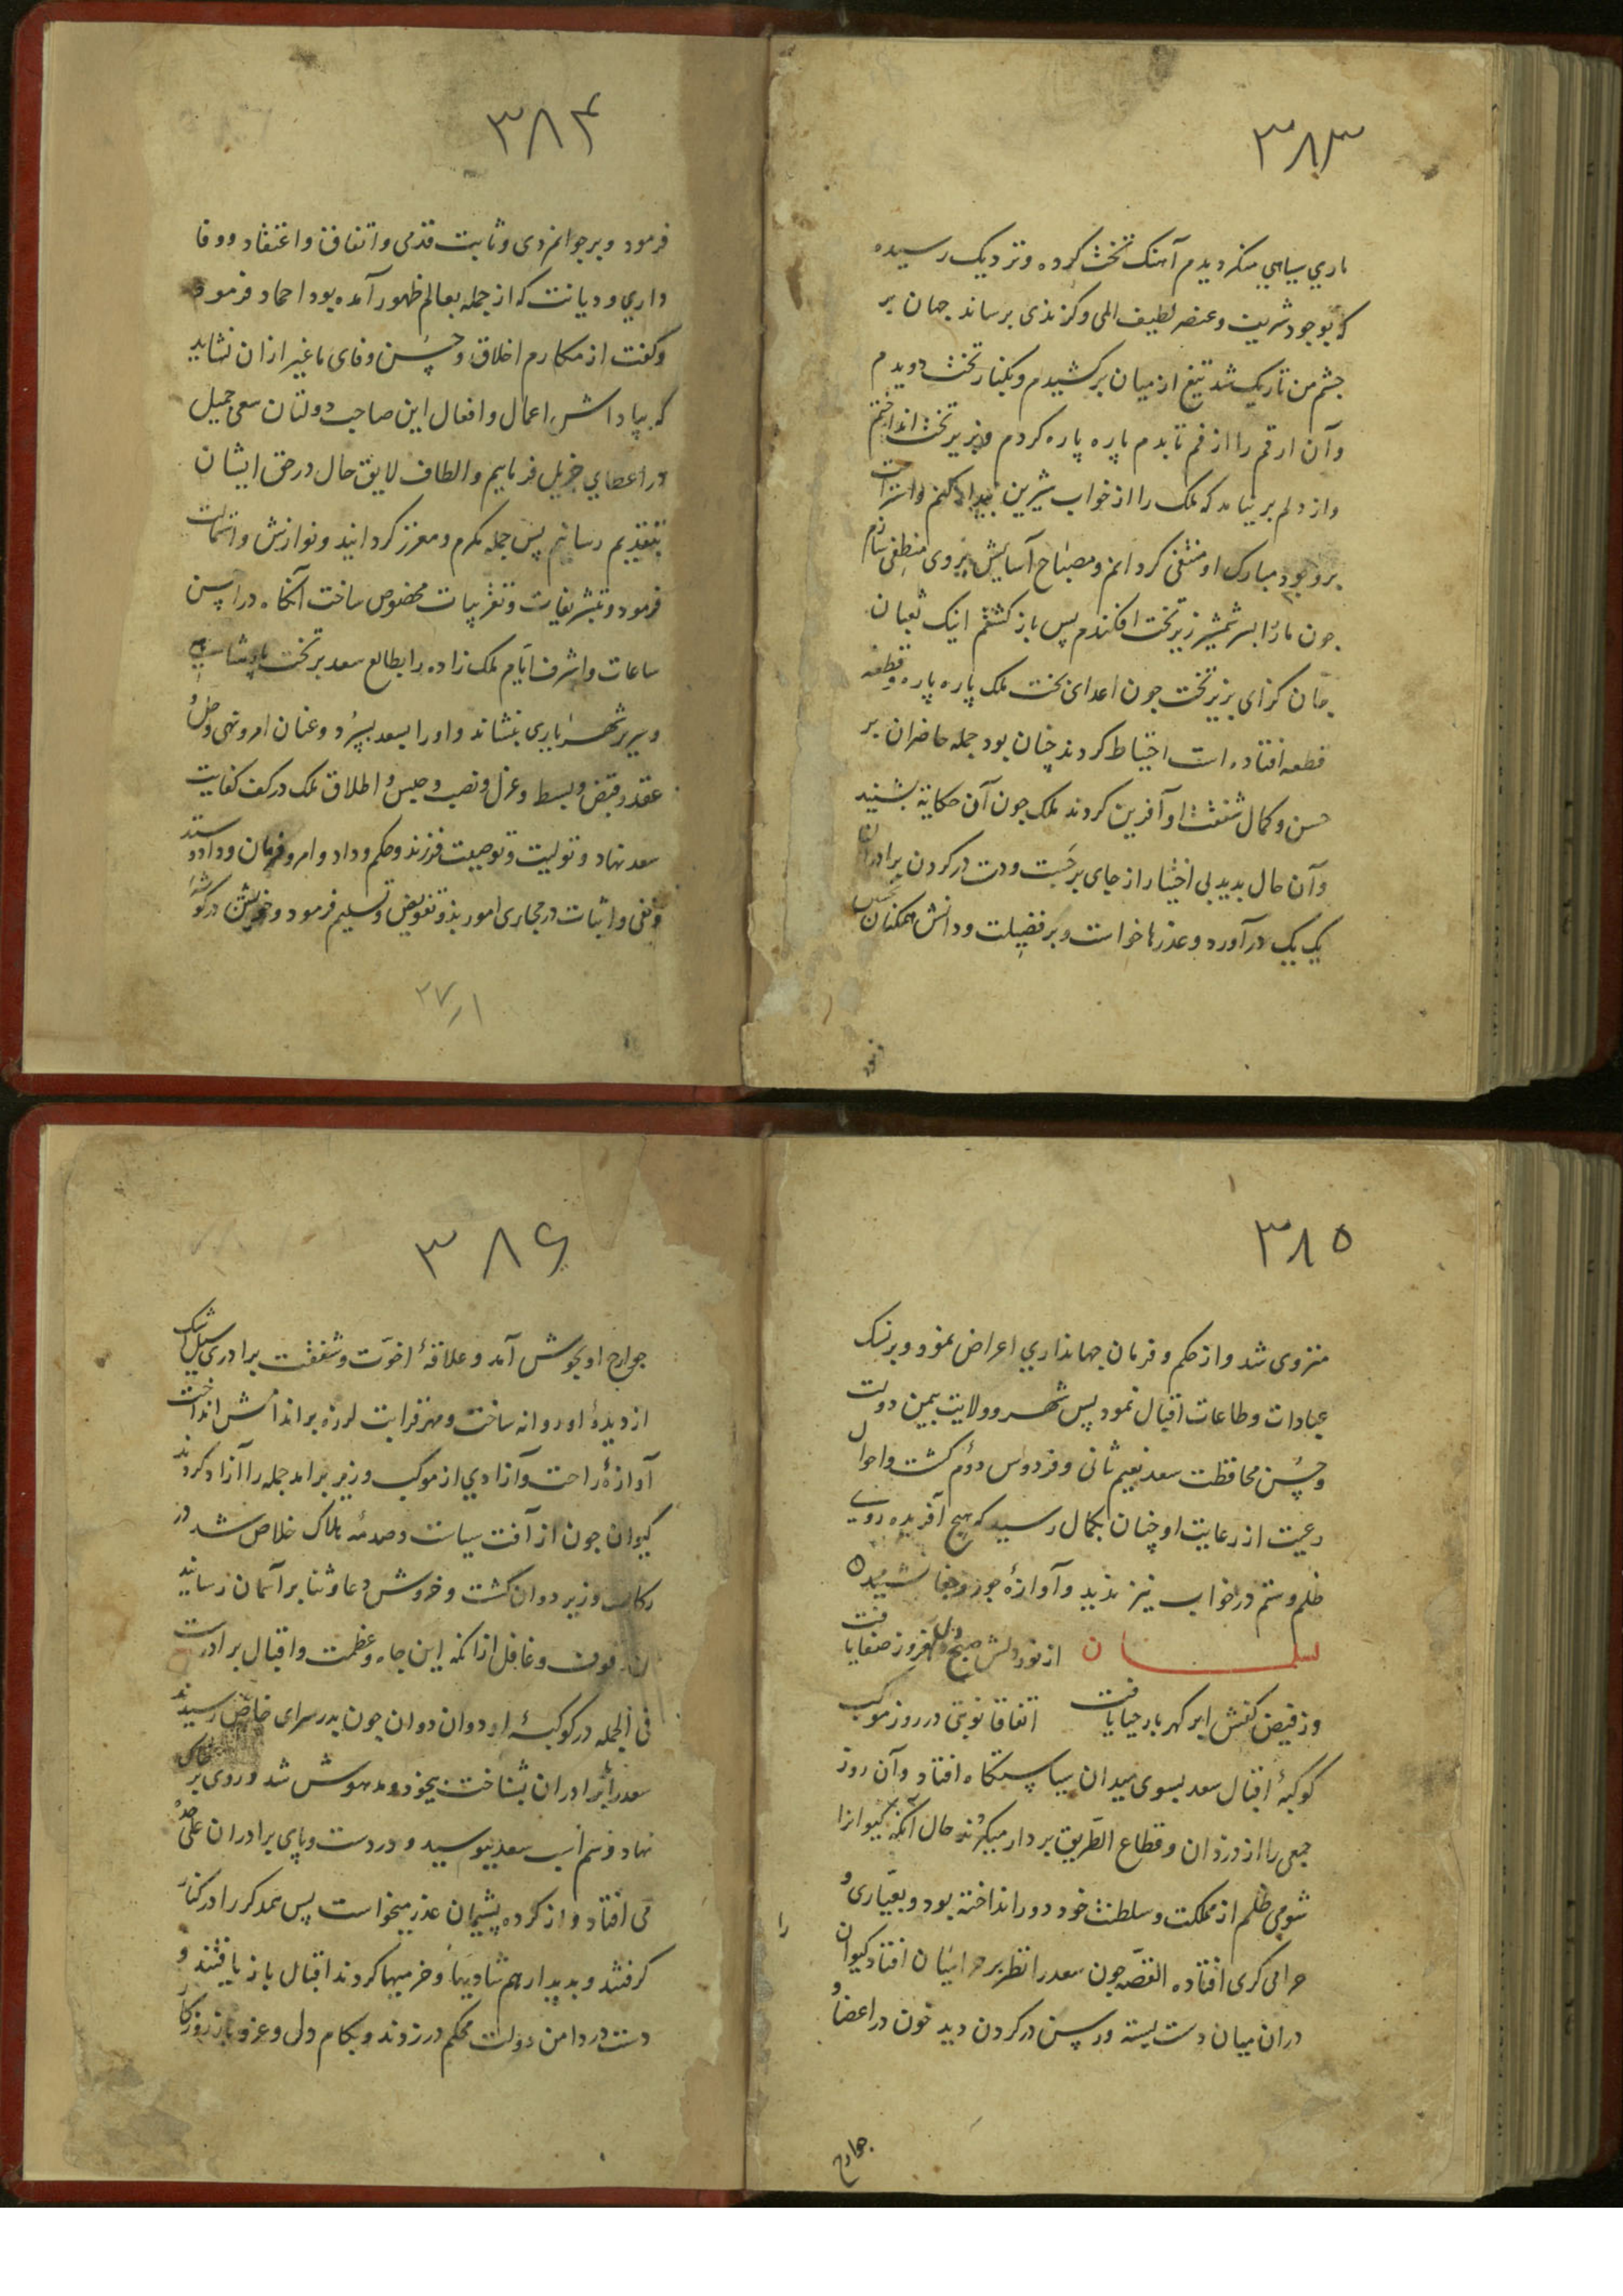 ۳۸۳
ماري سیاهی منکر دیدم آهنک تخت کرده و نزدیک رسیده
که بوجود شریفت و عنصر لطیف المی و کزندی برساند جهان بر
جشم من تاریک شد تیغ از میان برکشیدم و بکنار تخت دویدم
و آن ارقم را از فم تا بدم پاره پاره کردم و بزیر تخت انداختم
و از دلم بر نیامد که ملک را از خواب شیرین بیدار کنم و استراحت
بر وجود مبارک او منتفی کردانم و مصباح آسایش بروی منطفی سازم
جون مار را بسر شمشیر زیر تخت افکندم پس باز کشتم اینک ثعبان
جان کزای بزیر تخت جون اعدای بخت ملک پاره پاره و قطعه
قطعه افتاده است احتیاط کردند چنان بود جمله حاضران بر
حسن و کمال شفقت او آفرین کردند ملک جون آن حکایة بشنید
و آن حال بدید بی اختیار از جای برجست و دست در کردن برادران
یک یک درآورده و عذرها خواست و بر فضیلت و دانش همکنان تحسین
فرمود
۳۸۴
فرمود و بر جوانمردی و ثابت قدمی و اتفاق و اعتقاد و وفا
داري و دیانت که از جمله بعالم ظهور آمده بود احماد فرمود
و کفت از مکارم اخلاق و حسن وفای ما غیر ازان نشاید
که بپاداش اعمال و افعال این صاحب دولتان سعی جمیل
در اعطاي جزیل فرماییم و الطاف لایق حال در حق ایشان
بتقدیم رسانیم پس جمله مکرم و معزز کردانید و نوازش و استمالت
فرمود و بتشریفات و تقریبات مخصوص ساخت آنکاه در احسن
ساعات و اشرف ایام ملک زاده را بطالع سعد بر تخت پادشاهی
و سریر شهریاری بنشاند و او را بسعد بسپرد و عنان امر و نهی و حل و
عقد و قبض و بسط و عزل و نصب و حبس و اطلاق ملک در کف کفایت
سعد نهاد و تولیت و توصیت فرزند و حکم و داد و امر و فرمان و داد و ستد
و نفی و اثبات در مجاری امور بذو تفویض و تسلیم فرمود و خویشتن در کوشهٔ
۲۷ر۱
۳۸۵
منزوی شد و از حکم و فرمان جهانداري اعراض نمود و بر نسک
عبادات و طاعات اقبال نمود پس شهر و ولایت بیمن دولت
و حسن محافظت سعد نعیم ثانی و فردوس دوم کشت و احوال
رعیت از رعایت او چنان بکمال رسید که هیچ آفریده روی
ظلم و ستم در خواب نیز ندید و آوازهٔ جور و جفا نشنید
از نور دلش صبح دل افروز صفا یافت
وز فیض کفش ابر کهربار حیا یافت اتفاقا نوبتی در روز موکب
کوکبهٔ اقبال سعد بسوی میدان سیاستکاه افتاد و آن روز
جمعی را از دزدان و قطاع الطریق بر دار میکردند حال آنکه کیوانرا
شومی ظلم از مملکت و سلطنت خود دور انداخته بود و بعیاری و
حرامی کری افتاده القصه جون سعد را نظر بر حرامیان افتاد کیوان
را
دران میان دست بسته و رسن در کردن دید خون در اعضا و
جوارح
۳۸۶
جوارح او بجوش آمد و علاقهٔ اخوت و شفقت برادري سیل اشک
از دیدهٔ او روانه ساخت و مهر قرابت لرزه بر اندامش انداخت
آوازهٔ راحت و آزادي از موکب وزیر برامد جمله را آزاد کردند
کیوان جون از آفت سیاست و صدمهٔ هلاک خلاص شد در
رکاب وزیر دوان کشت و خروش دعا و ثنا بر آسمان رسانید
و غافل ازانکه این جاه و عظمت و اقبال برادرست
فی الجمله در کوکبهٔ او دوان دوان جون بدر سرای خاص رسیدند
سعد را برادران بشناخت بیخود و مدهوش شد و روی بر خاک
نهاد و سم اسب سعد ببوسید و در دست و پای برادران علی حده
می افتاد و از کرده پشیمان عذر میخواست پس همدکر را در کنار
کرفتند و بدیدار هم شادیها و خرمیها کردند اقبال باز یافتند و
دست در دامن دولت محکم در زدند و بکام دل و عز و ناز روزکار